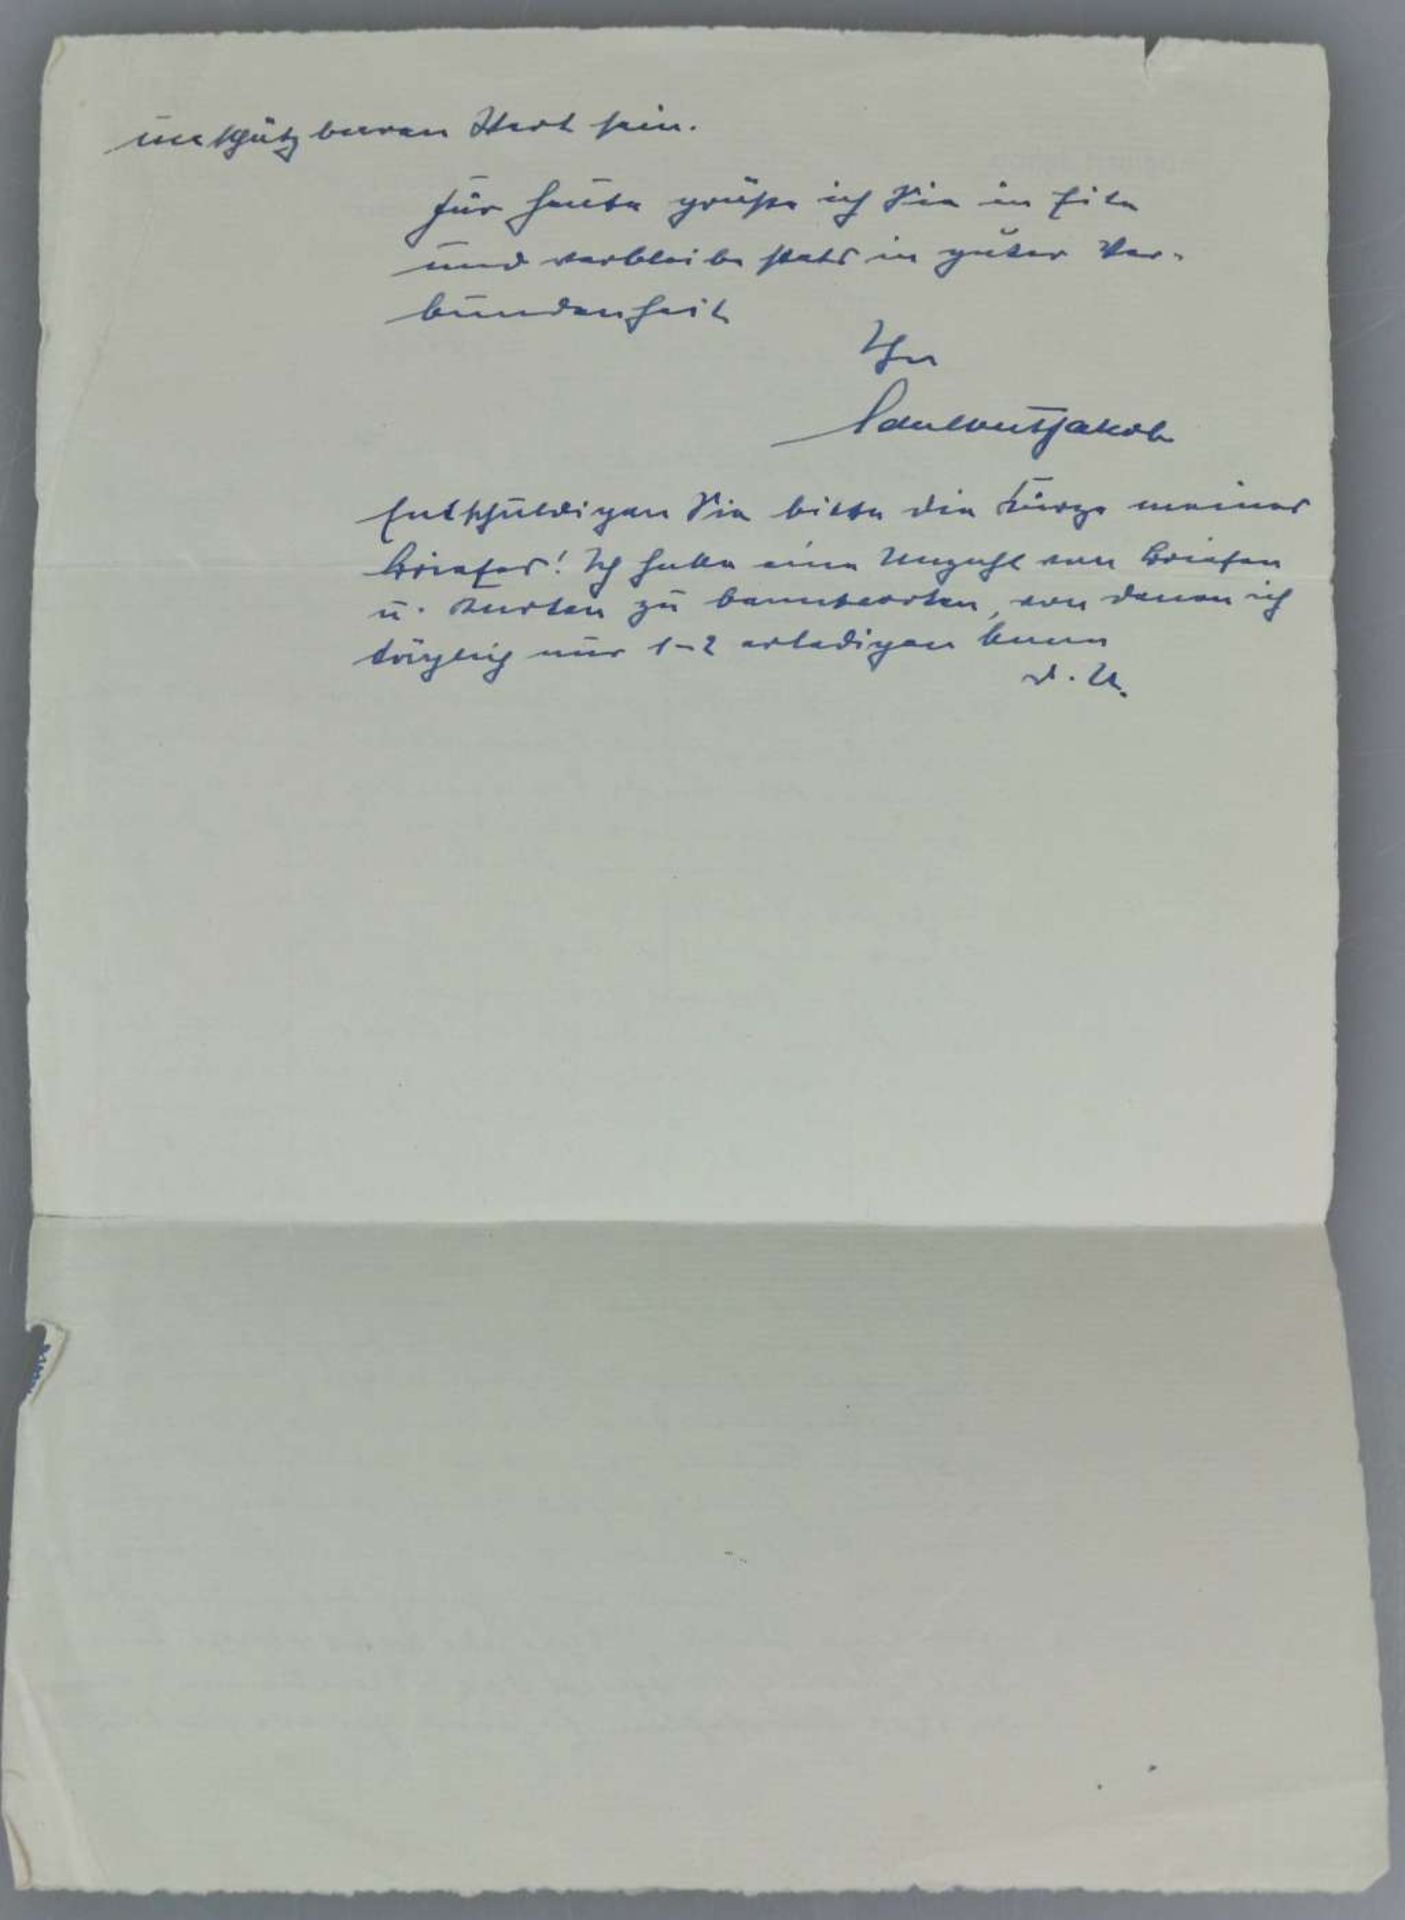 unschätzbaren Wert sein.
Für heute grüße ich Sie in Eile
und verbleibe stets in guter Ver-
bundenheit
Ihr
Entschuldigen Sie bitte die Kürze meines
Briefes! Ich habe eine Unzahl von Briefen
u. Karten zu beantworten, von denen ich
täglich nur 1-2 erledigen kann
D. U.